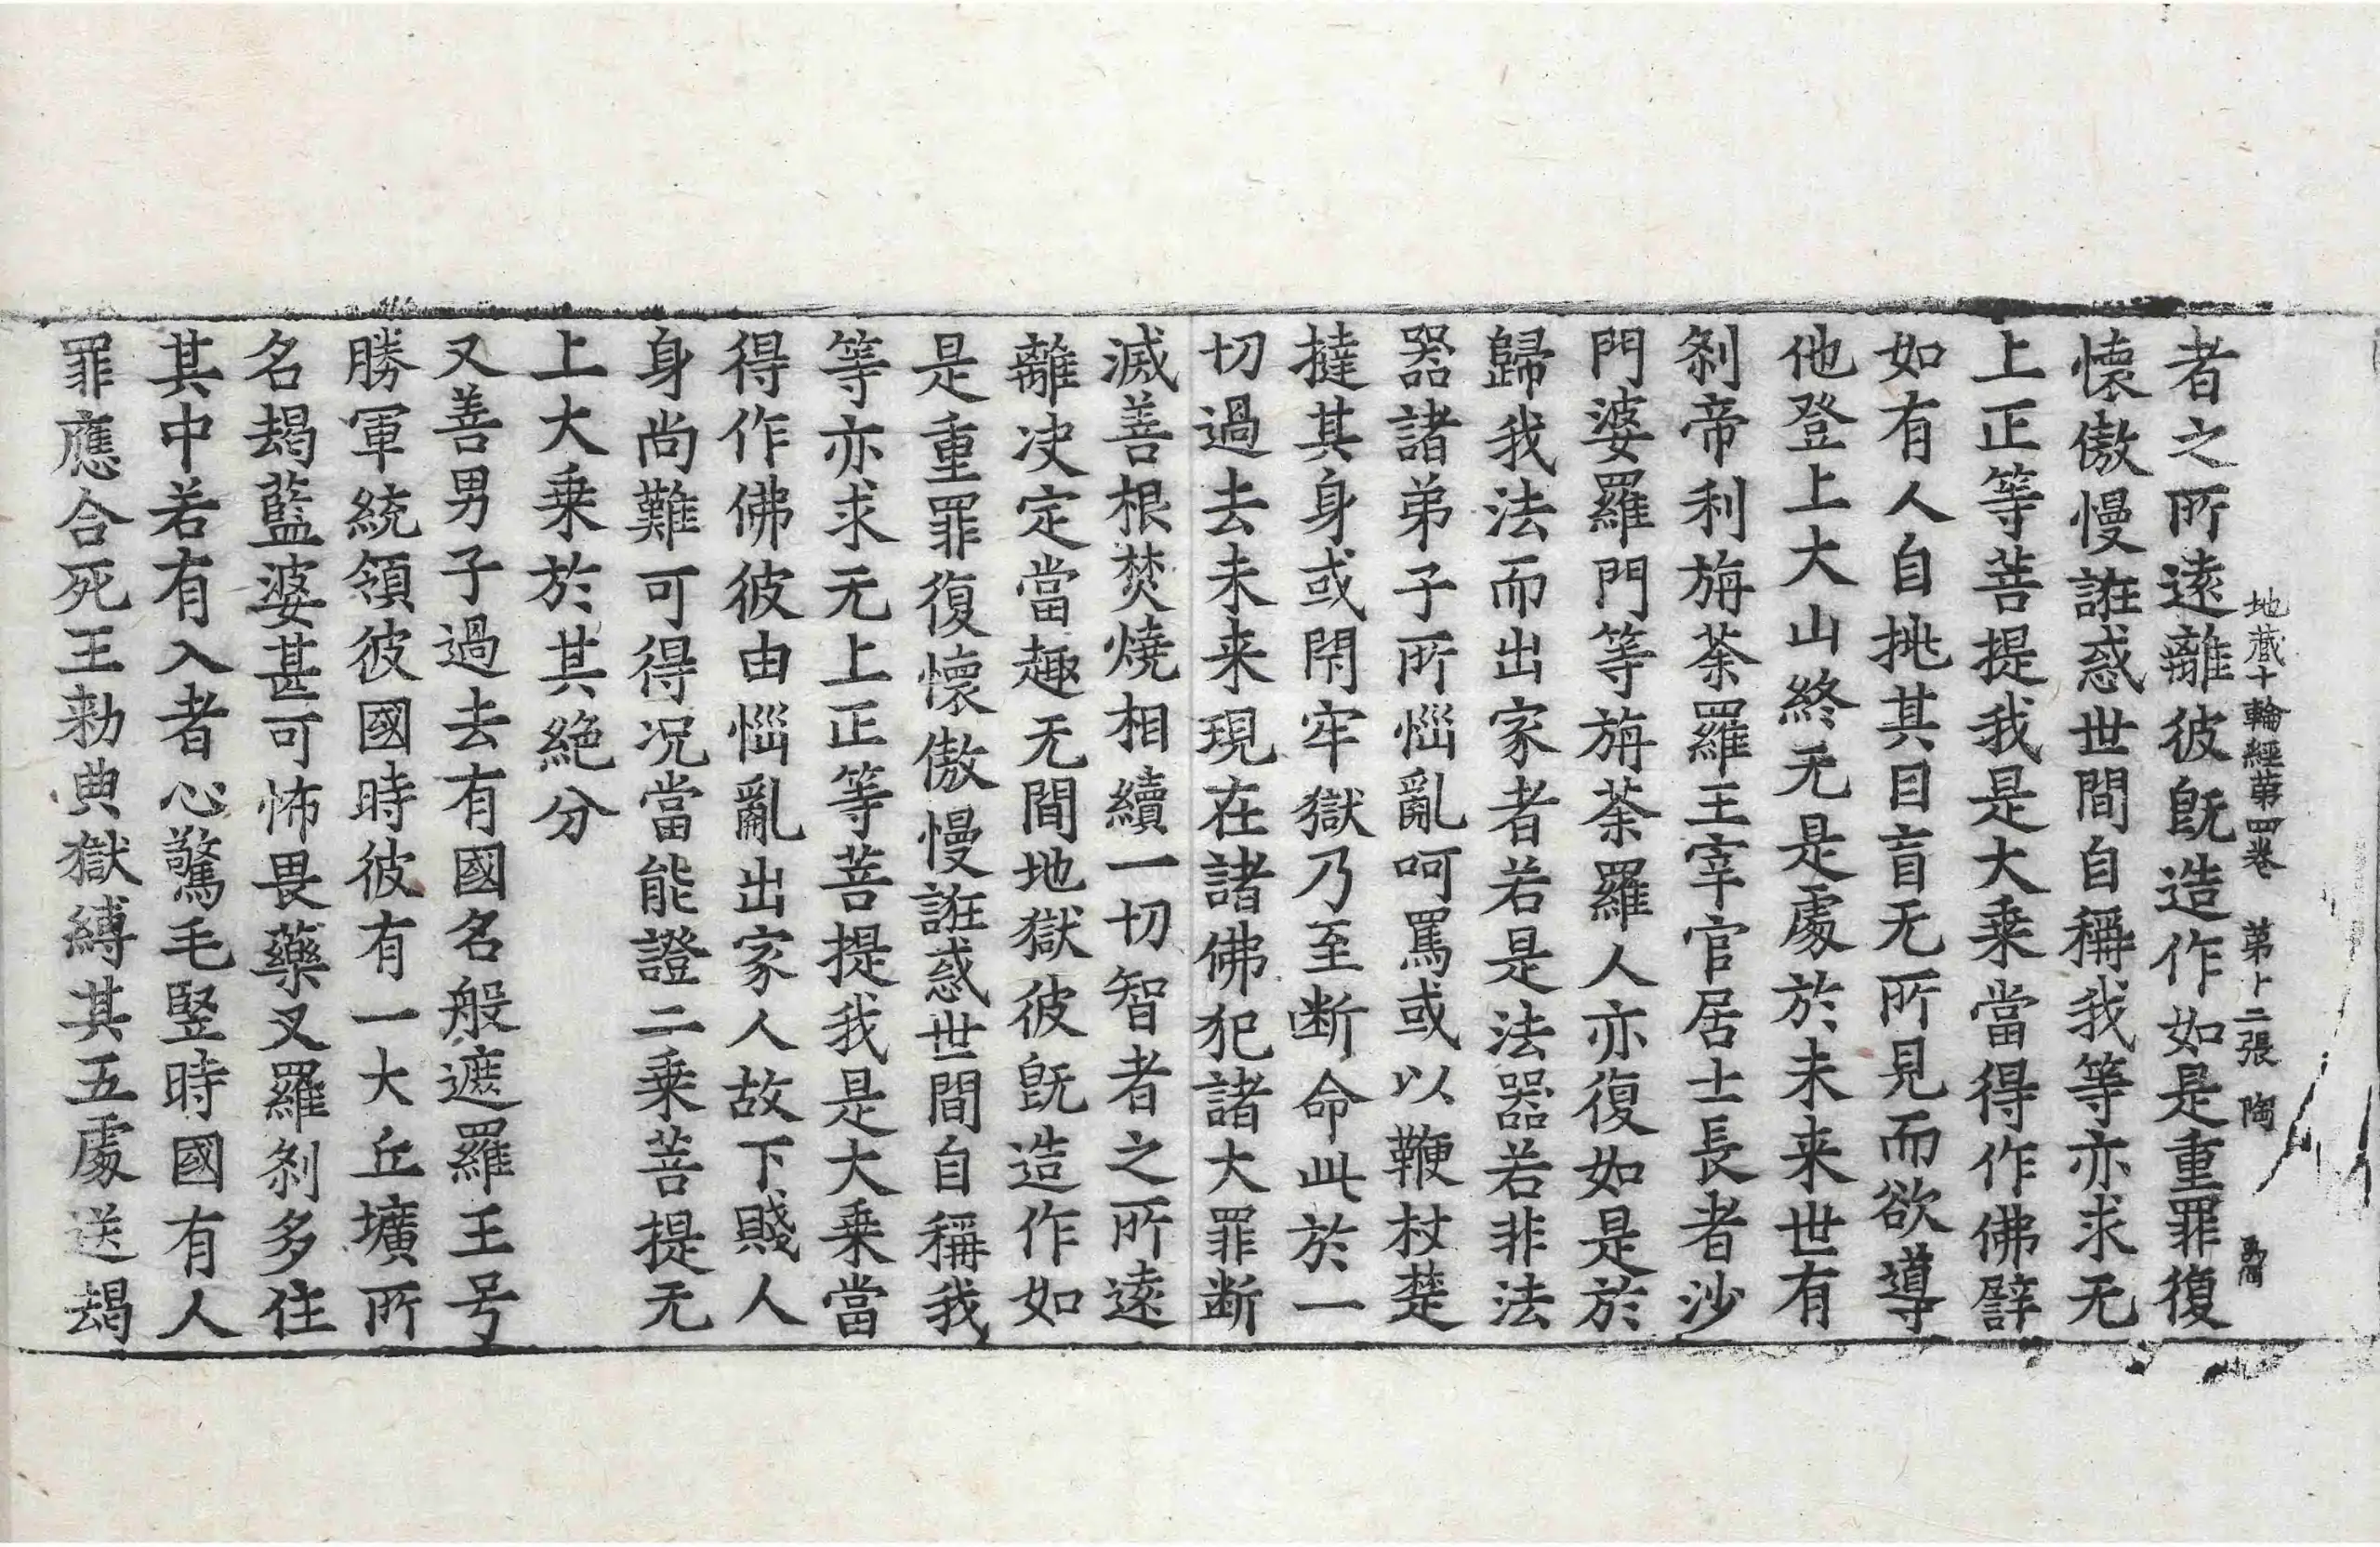 地藏十輪經第四卷 第十二張 陶
者之所遠離彼既造作如是重罪復
懷慠慢誑惑世間自稱我等亦求无
上正等菩提我是大乗當得作佛譬
如有人自挑其目盲无所見而欲導
他登上大山終无是處於未来世有
剎帝利旃荼羅王宰官居士長者沙
門婆羅門等旃荼羅人亦復如是於
歸我法而出家者若是法器若非法
器諸弟子所惱亂呵罵或以鞭杖楚
撻其身或閇牢獄乃至断命此於一
切過去未来現在諸佛犯諸大罪断
滅善根焚燒相續一切智者之所遠
離决定當趣无間地獄彼既造作如
是重罪復懷慠慢誑惑世間自稱我
等亦求无上正等菩提我是大乗當
得作佛彼由惱亂出家人故下賤人
身尚難可得况當能證二乗菩提无
上大乗於其絶分
又善男子過去有國名般遮羅王号
勝軍統領彼國時彼有一大丘壙所
名朅藍婆甚可怖畏藥叉羅剎多住
其中若有入者心驚毛竪時國有人
罪應合死王勑典獄縛其五處送朅